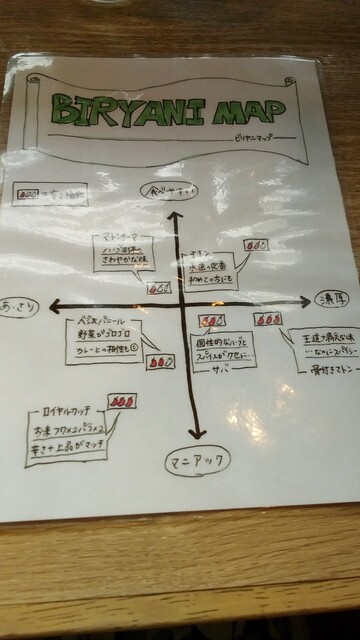 BIRYANI MAP
ビリヤニマップ
食べやすい
マトンキーマ
さわやかな味
チキン
永遠の定番
初めての方にも
あっさり
濃厚
ベジ&パニール
野菜がゴロゴロ
カレーとの相性も◎
個性的なハーブと
スパイスがクセに…
サバ
王道の濃い味
…なのにスパイシー
骨付きマトン
ロイヤルクッチ
お米フワ×2パラ×2
辛さ+上品がマッチ
マニアック